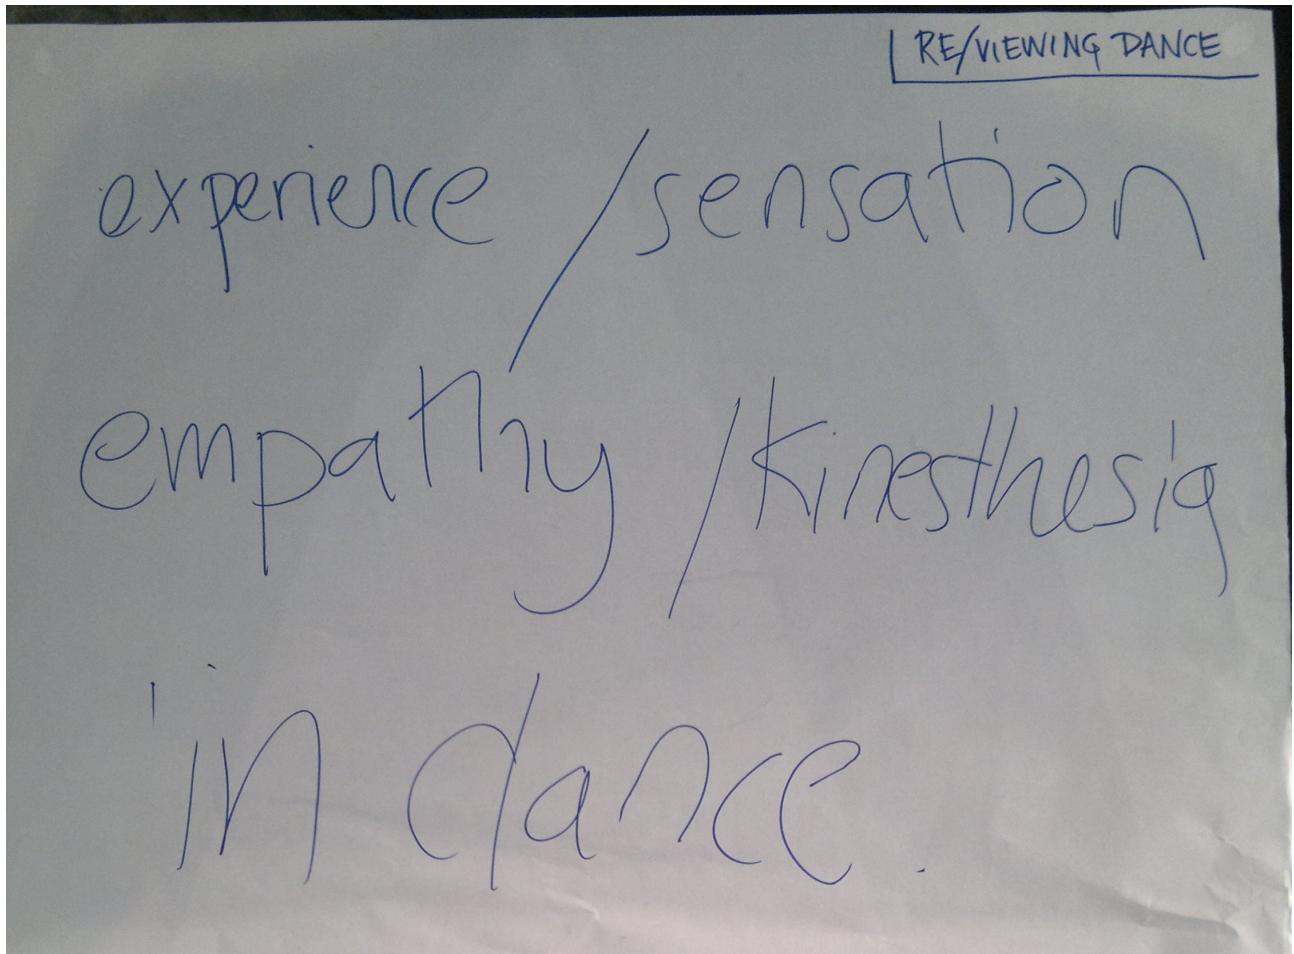 RE/VIEWING DANCE
experience / sensation
empathy / kinesthesia
in dance.